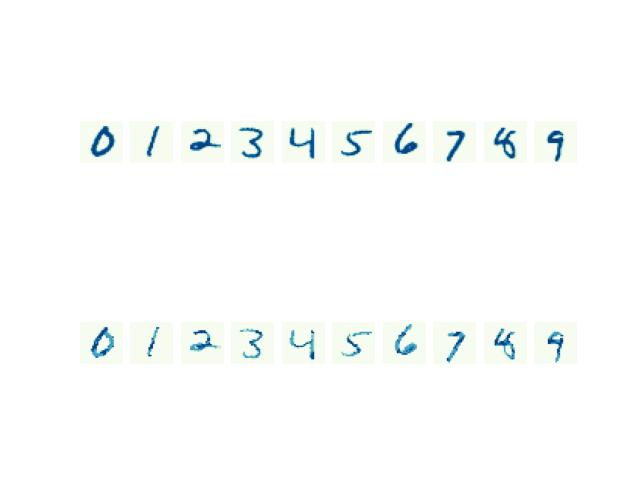 0 1 2 3 4 5 6 7 8 9
0 1 2 3 4 5 6 7 8 9